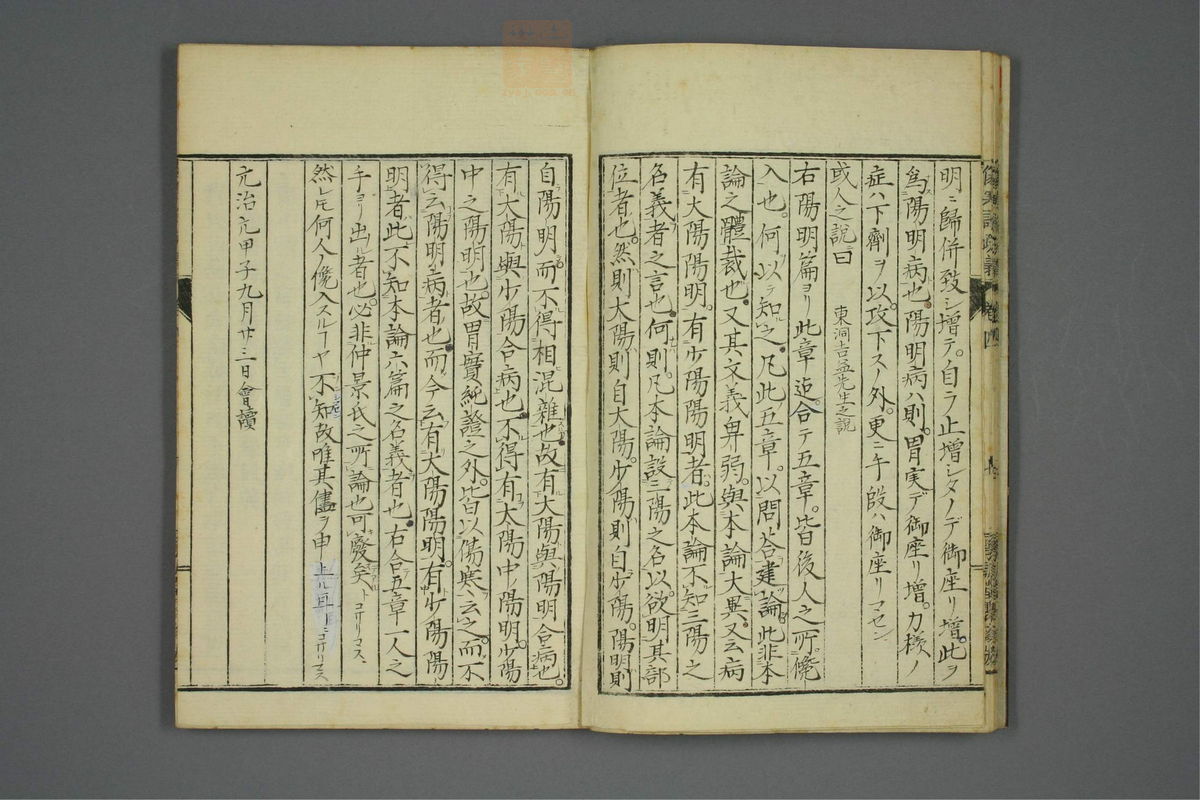 明ニ歸併致シ増テ。自ラ止増シタノデ御座リ増。此ヲ
爲陽明病也。陽明病ハ則。胃実デ御座リ増。カ様ノ
症ハ下劑ヲ以。攻下スノ外。更ニ手段ハ御座リマセン
或人之說曰 東洞吉益先生之說
右陽明篇ヨリ此章迠。合テ五章。皆後人之所。儳
入也。何以テ知之。凡此五章。以問答建論。此非本
論之體裁也。又其文義卑弱。與本論大異。又云病
有大陽陽明。有少陽陽明者。此本論不知三陽之
名義者之言也。何則。凡本論設三陽之名。以欲明其部
位者也。然則大陽則自大陽。少陽則自少陽。陽明則
自陽明而不得相混雜也。故有大陽與陽明合病也。
有大陽與少陽合病也。不得有太陽中ノ陽明。少陽
中之陽明也。故胃實純證之外。皆以傷寒云之。而不
得云陽明病者也。而今云有大陽陽明。有少陽陽
明者。此不知本論六篇之名義者也。右合五章一人之
手ヨリ出ル者也。必非仲景氏之所論也可廢矣トコザリマス、
然レ𪜈何人ノ儳入スルヿヤ不知故唯其儘ヲ申
元治元甲子九月廿三日會讀
卷四